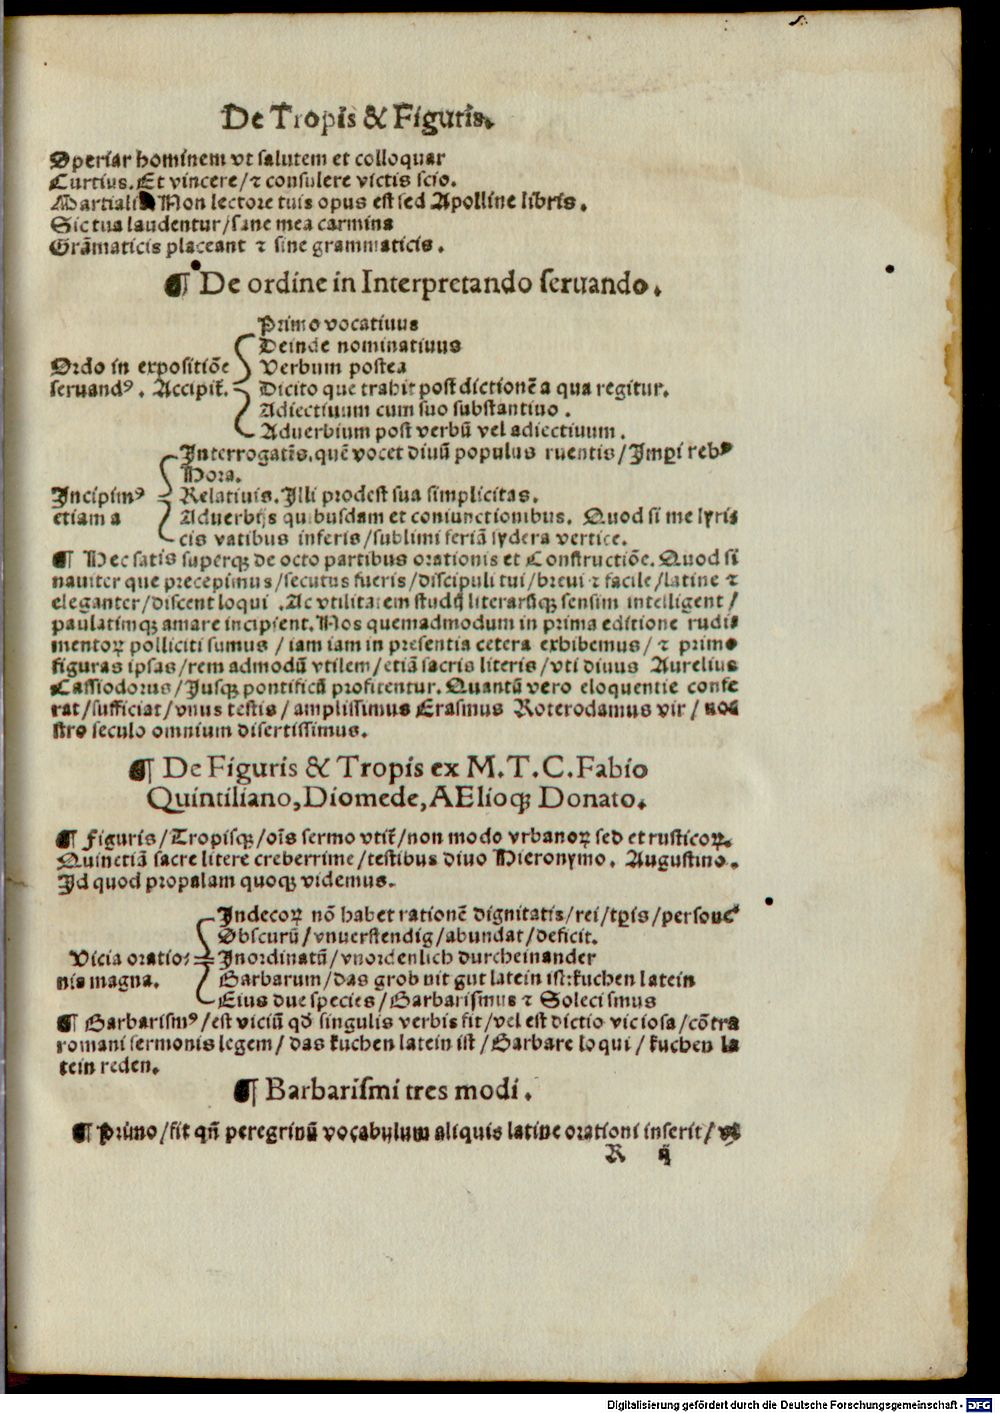 De Tropis & Figuris.
Operiar hominem vt salutem et colloquar
Curtius. Et vincere / ⁊ consulere victis scio.
Martialis Non lectore tuis opus est sed Apolline libris.
Sic tua laudentur / sane mea carmina
Grāmaticis placeant ⁊ sine grammaticis.
¶ De ordine in Interpretando seruando.
Primo vocatiuus
Deinde nominatiuus
Ordo in expositiōe Verbum postea
seruandꝰ. Accipit̄. Dicito que trahit post dictionē a qua regitur.
Adiectiuum cum suo substantiuo.
Aduerbium post verbū vel adiectiuum.
Interrogatīs. quē vocet diuū populus ruentis / Imꝑi rebꝰ
Hora.
Incipimꝰ Relatiuis. Illi prodest sua simplicitas.
etiam a Aduerbijs quibusdam et coniunctionibus. Quod si me lyris
cis vatibus inseris / sublimi feriā sydera vertice.
¶ Hec satis superqꝫ de octo partibus orationis et Constructiōe. Quod si
nauiter que precepimus / secutus fueris / discipuli tui / breui ⁊ facile / latine ⁊
eleganter / discent loqui. Ac vtilitatem studij literarūqꝫ sensim intelligent /
paulatimqꝫ amare incipient. Nos quemadmodum in prima editione rudi⸗
mentoꝝ polliciti sumus / iam iam in presentia cetera exhibemus / ⁊ primo
figuras ipsas / rem admodū vtilem / etiā sacris literis / vti diuus Aurelius
Cassiodorus / Iusqꝫ pontificū profitentur. Quantū vero eloquentie confe
rat / sufficiat / vnus testis / amplissimus Erasmus Roterodamus vir / nos
stro seculo omnium disertissimus.
¶ De Figuris & Tropis ex M.T.C.Fabio
Quintiliano, Diomede, AElioqꝫ Donato.
¶ Figuris / Tropisqꝫ / oīs sermo vtit̄ / non modo vrbanoꝝ sed et rusticoꝝ.
Quinetiā sacre litere creberrime / testibus diuo Hieronymo. Augustino.
Id quod propalam quoqꝫ videmus.
Indecoꝝ nō habet rationē dignitatis / rei / tꝑis / persone
Obscurū / vnuerstendig / abundat / deficit.
Vicia oratio⸗ Inordinatū / vnordenlich durcheinander
nis magna. Barbarum / das grob nit gut latein ist: kuchen latein
Eius due species / Barbarismus ⁊ Solecismus
¶ Barbarismꝰ / est viciū qd̄ singulis verbis fit / vel est dictio viciosa / cōtra
romani sermonis legem / das kuchen latein ist / Barbare loqui / kuchen la
tein reden.
¶ Barbarismi tres modi.
¶ Primo / fit qn̄ peregrinū vocabulum aliquis latine orationi inserit / vt
R ij
Digitalisierung gefördert durch die Deutsche Forschungsgemeinschaft - DFG